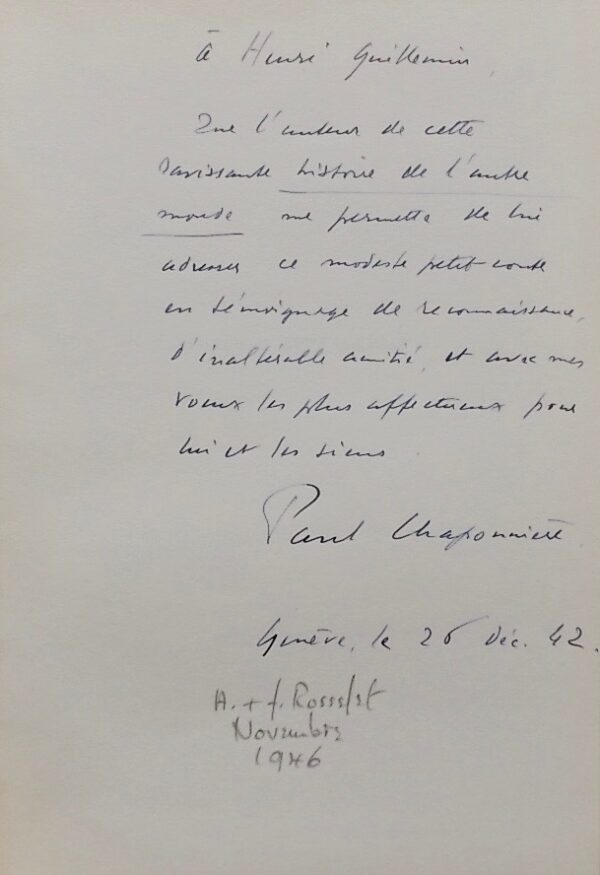 à Henri Guillemin,
Que l'auteur de cette
ravissante histoire de l'autre
monde me permette de lui
adresser ce modeste petit conte
en témoignage de reconnaissance,
d'inaltérable amitié, et avec mes
voeux les plus affectueux pour
lui et les siens
Paul Chaponnière
Genève, le 26 déc. 42.
A. + J. Rosselet
Novembre
1946